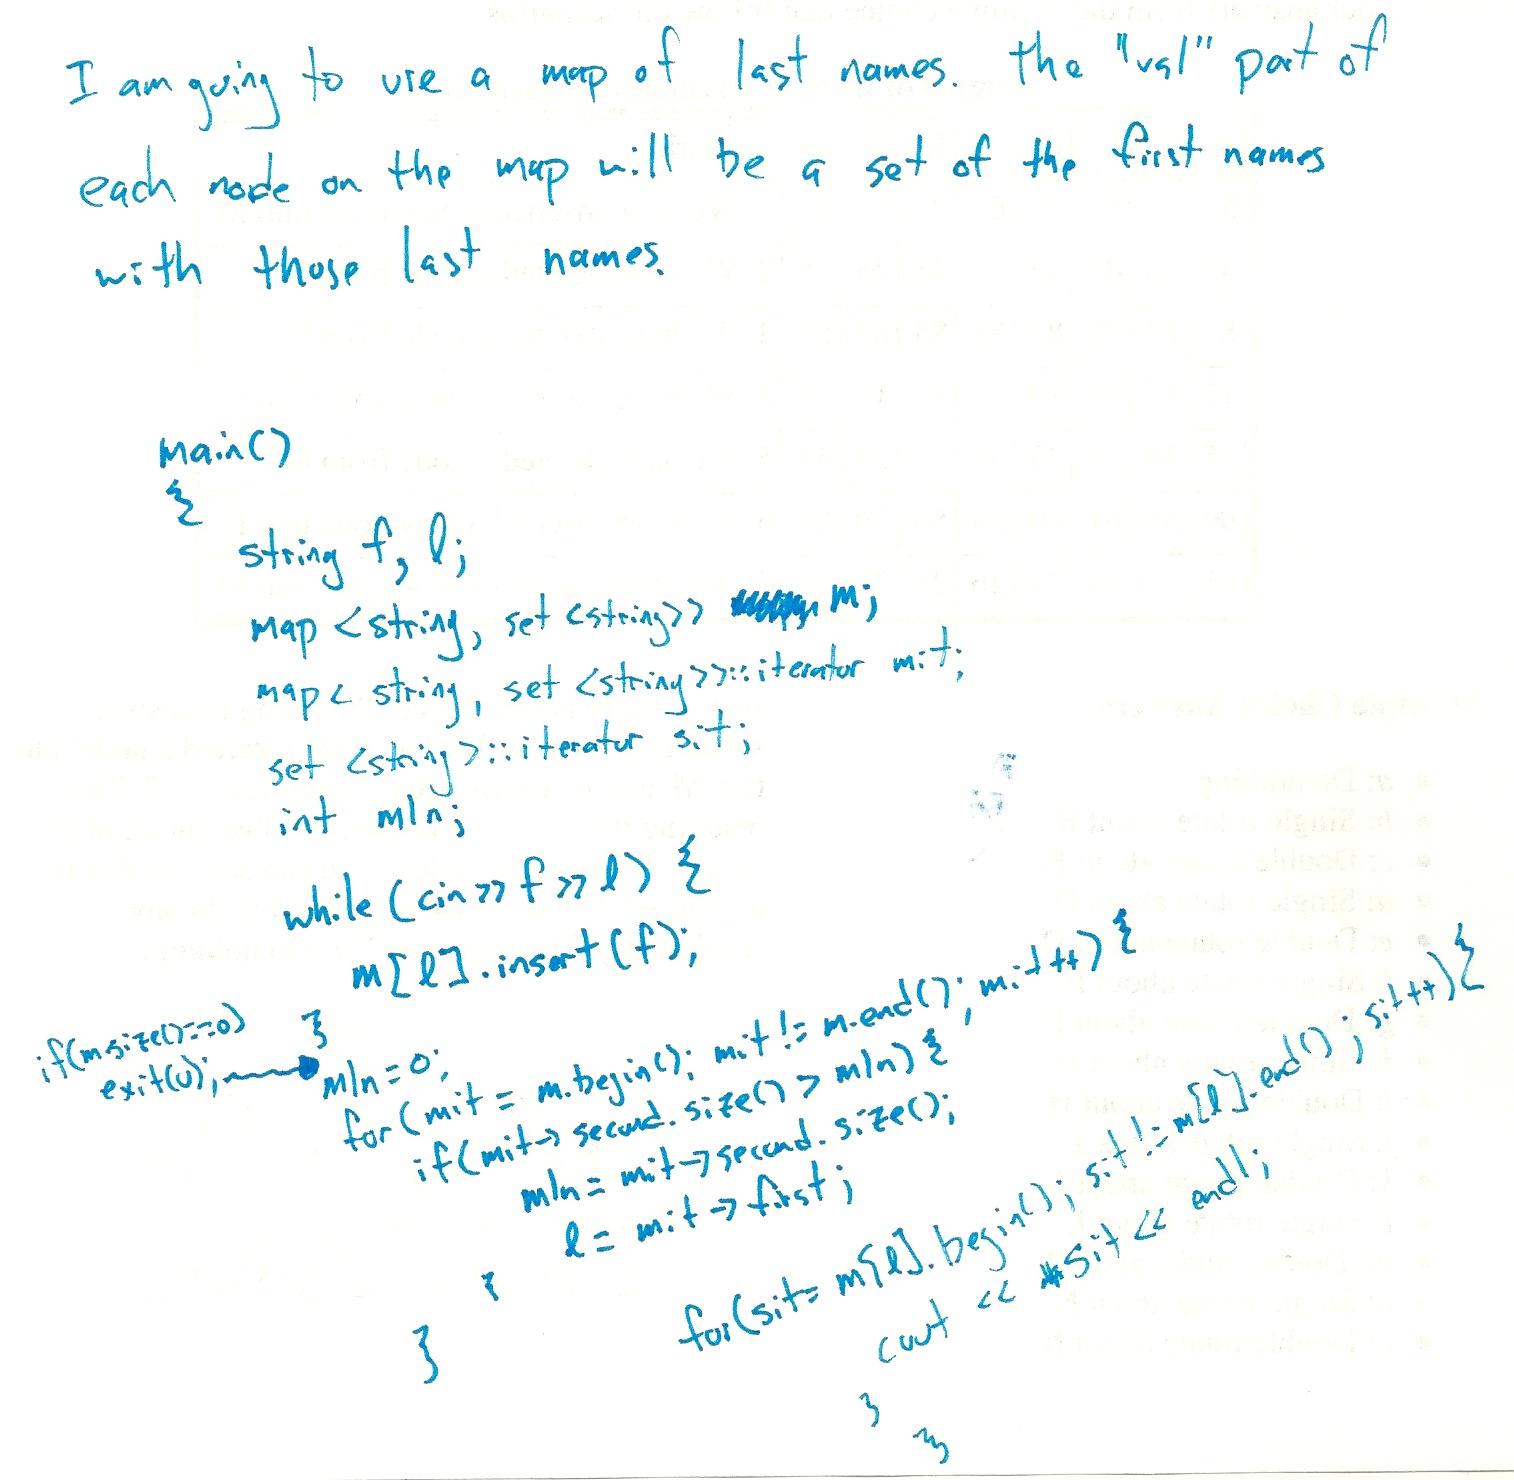 I am going to use a map of last names. The "val" part of
each node on the map will be a set of the first names
with those last names.
main()
{
string f, l;
map <string, set <string>> m;
map< string, set <string>>::iterator mit;
set <string>::iterator sit;
int mln;
while (cin >> f >> l) {
m[l].insert(f);
}
if(m.size()==0)
exit(0);
mln=0;
for (mit = m.begin(); mit != m.end(); mit++) {
if(mit->second.size() > mln) {
mln = mit->second.size();
l = mit->first;
}
}
for(sit= m[l].begin(); sit != m[l].end(); sit++) {
cout << *sit << endl;
}
}